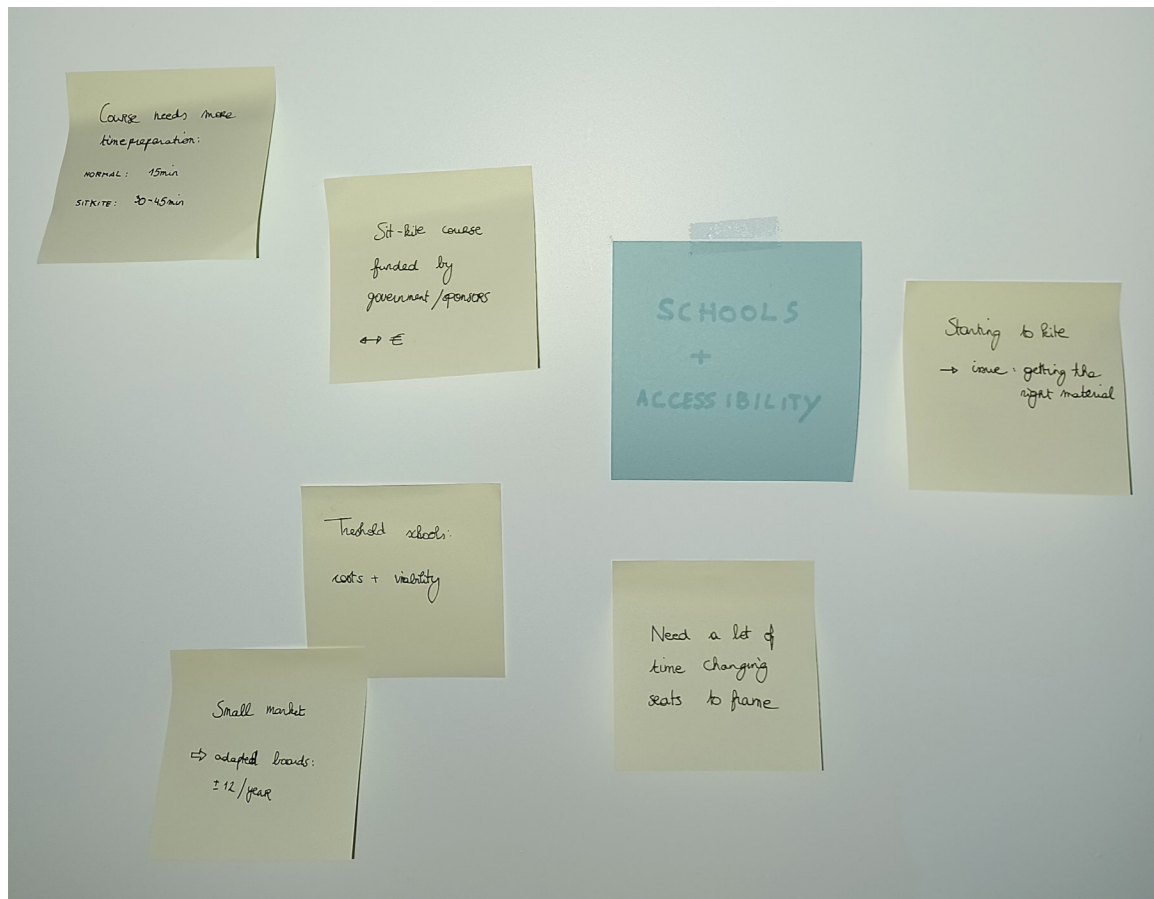 Course needs more
time preparation:
NORMAL: 15min
SITKITE: 30-45min
Sit-kite course
funded by
government/sponsors
↔ €
SCHOOLS
+
ACCESSIBILITY
Starting to kite
→ issue: getting the
right material
Treshold schools:
costs + viability
Small market
⇒ adapted boards:
±12/year
Need a lot of
time changing
seats to frame